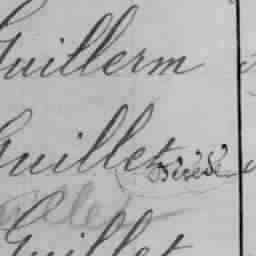 Guillerm
Guillet Décédé
Guillet